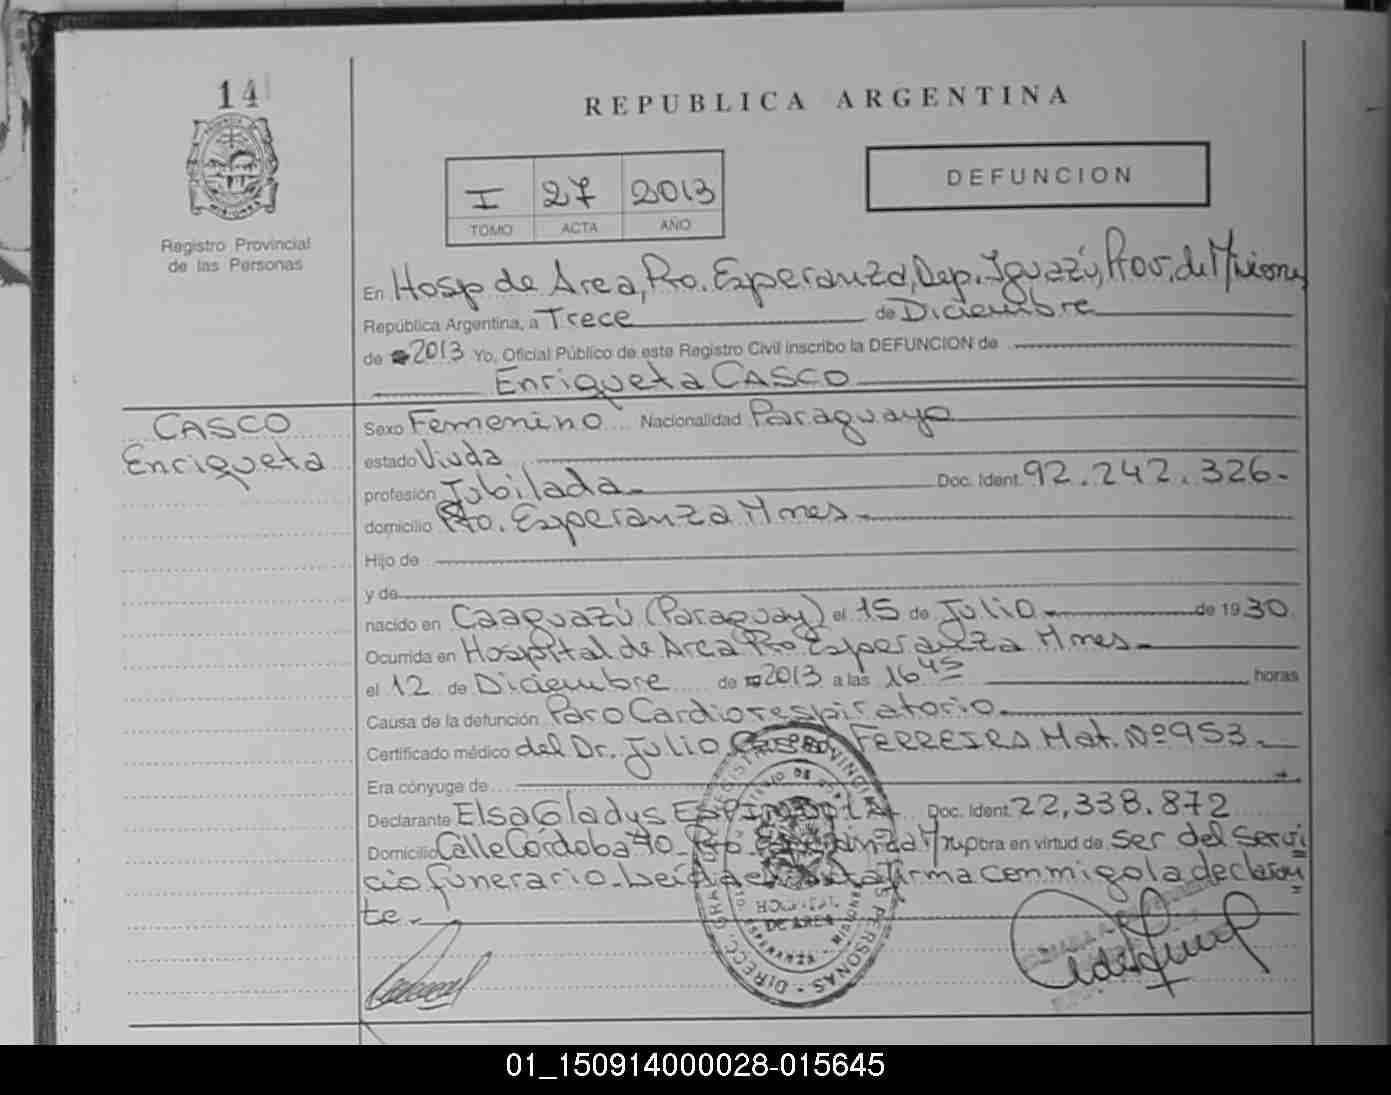 14
REPUBLICA ARGENTINA
I 27 2013
TOMO ACTA AÑO
DEFUNCION
Registro Provincial
de las Personas
En Hosp de Area, Pto. Esperanza, Dep. Iguazú, Prov. de Misiones
República Argentina, a Trece de Diciembre
de 2013 Yo, Oficial Público de este Registro Civil inscribo la DEFUNCION de
Enriqueta CASCO
CASCO
Enriqueta
Sexo Femenino Nacionalidad Paraguaya
estado Viuda
profesión Jubilada Doc. Ident. 92.242.326-
domicilio Pto. Esperanza Mnes
Hijo de
y de
nacido en Caaguazú (Paraguay) el 15 de Julio de 1930
Ocurrida en Hospital de Area Pto Esperanza Mnes
el 12 de Diciembre de 2013 a las 16 45 horas
Causa de la defunción Paro Cardiorespiratorio
Certificado médico del Dr. Julio FERREIRA Mat. Nº 953
Era cónyuge de
Declarante Elsa Gladys ESPINDOLA Doc. Ident. 22,338.872
Domicilio Calle Córdoba 40 Pto Esperanza obra en virtud de ser del servi
cio funerario. Leida el acta firma conmigo la declaran
te.
HOSPITAL
DE AREA
ESPERANZA - MISIONES
01_150914000028-015645